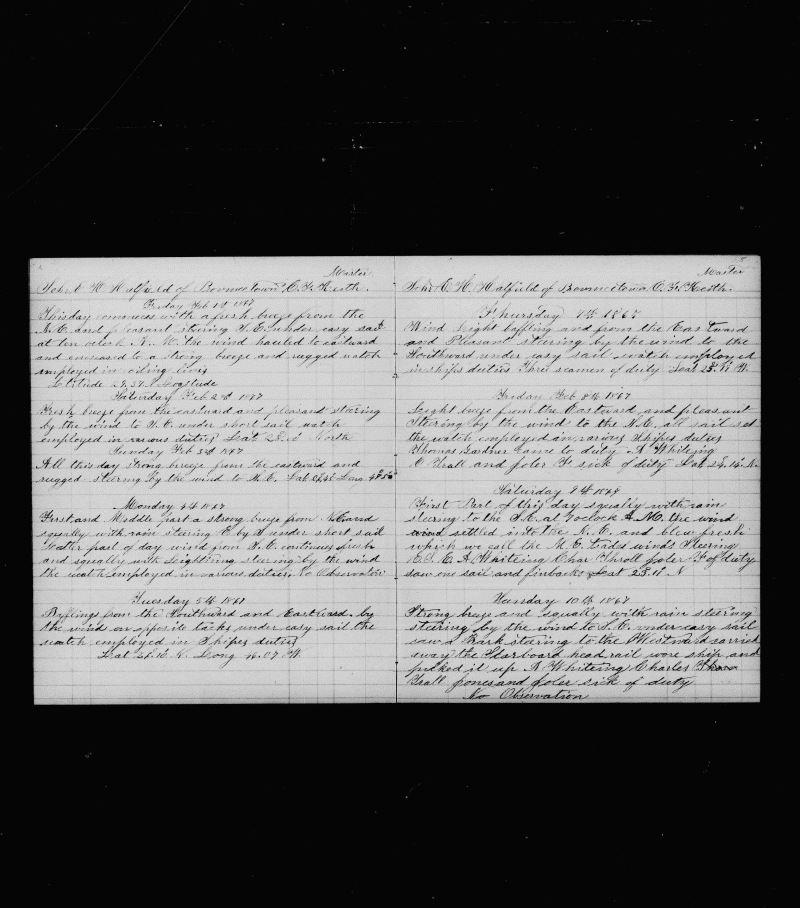 Master
Schr E H Hatfield of Provincetown, C. F. Keith.
Friday Feb 1st 1867
This day commences with a fresh breeze from the
N.E. and pleasant stearing S.E. under easy sail
at ten oclock A. M. the wind hauled to eastward
and encreased to a strong breeze and rugged watch
employed in
Latitude Longitude
Saturday Feb 2nd 1867
Fresh breeze from the eastward and pleasant stearing
by the wind to under short sail watch
employed in various duties Lat North
Sunday Feb 3rd 1867
All this day strong breeze from the eastward and
rugged steering by the wind to Lat Long
Monday 4th 1867
First and Middle part a strong breeze from
squally with rain steering E by S under short sail
Latter part of day wind from continues fresh
and squally with lightning stearing by the wind
the watch employed in various duties No Observation
Tuesday 5th 1867
Bafflings from the Southward and Eastward. by
the wind on opposite tacks under easy sail the
watch employed in Shipes duties
Lat N. Long W.
Master
Schr E H Hatfield of Provincetown C. F. Keith.
Thursday 7th 1867
Wind Light baffling and from the Eastward
and Pleasant stearing by the wind to the
Southward under easy sail watch employed
in ships duties Three seamen of duty Lat
Friday Feb 8th 1867
Light breeze from the Eastward and pleasant
Stering by the wind to the all sail set
the watch employed in various Shipes duties
Thomas Gardner came to duty A Whiteing
C Trall and Joler F sick of duty Lat
Saturday 9th 1867
First Part of this day squally with rain
steering to the at oclock A.M. the wind
wind settled into the N. E. and blew fresh
which we call the N. E. winds Steering
A. Whiteing Char Throll Joler F of duty
saw one sail and finbacks Lat N
Sunday 10th 1867
Strong breeze and squally with rain steering
stearing by the wind to under easy sail
saw a Bark staring to the Westward carried
away the Starboard head rail wore ship and
picked it up A Whiteing Charles
Trall Jones and Joler sick of duty
No Observation